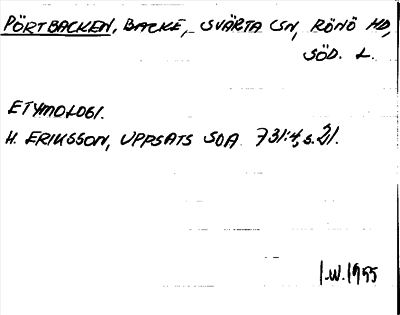 PÖRTBACKEN, BACKE, SVÄRTA CSN, RÖNÖ HD,
SÖD. L.
ETYMOLOGI.
H. ERIKSSON, UPPSATS SOA 731:4, s. 21.
I.W. 1955